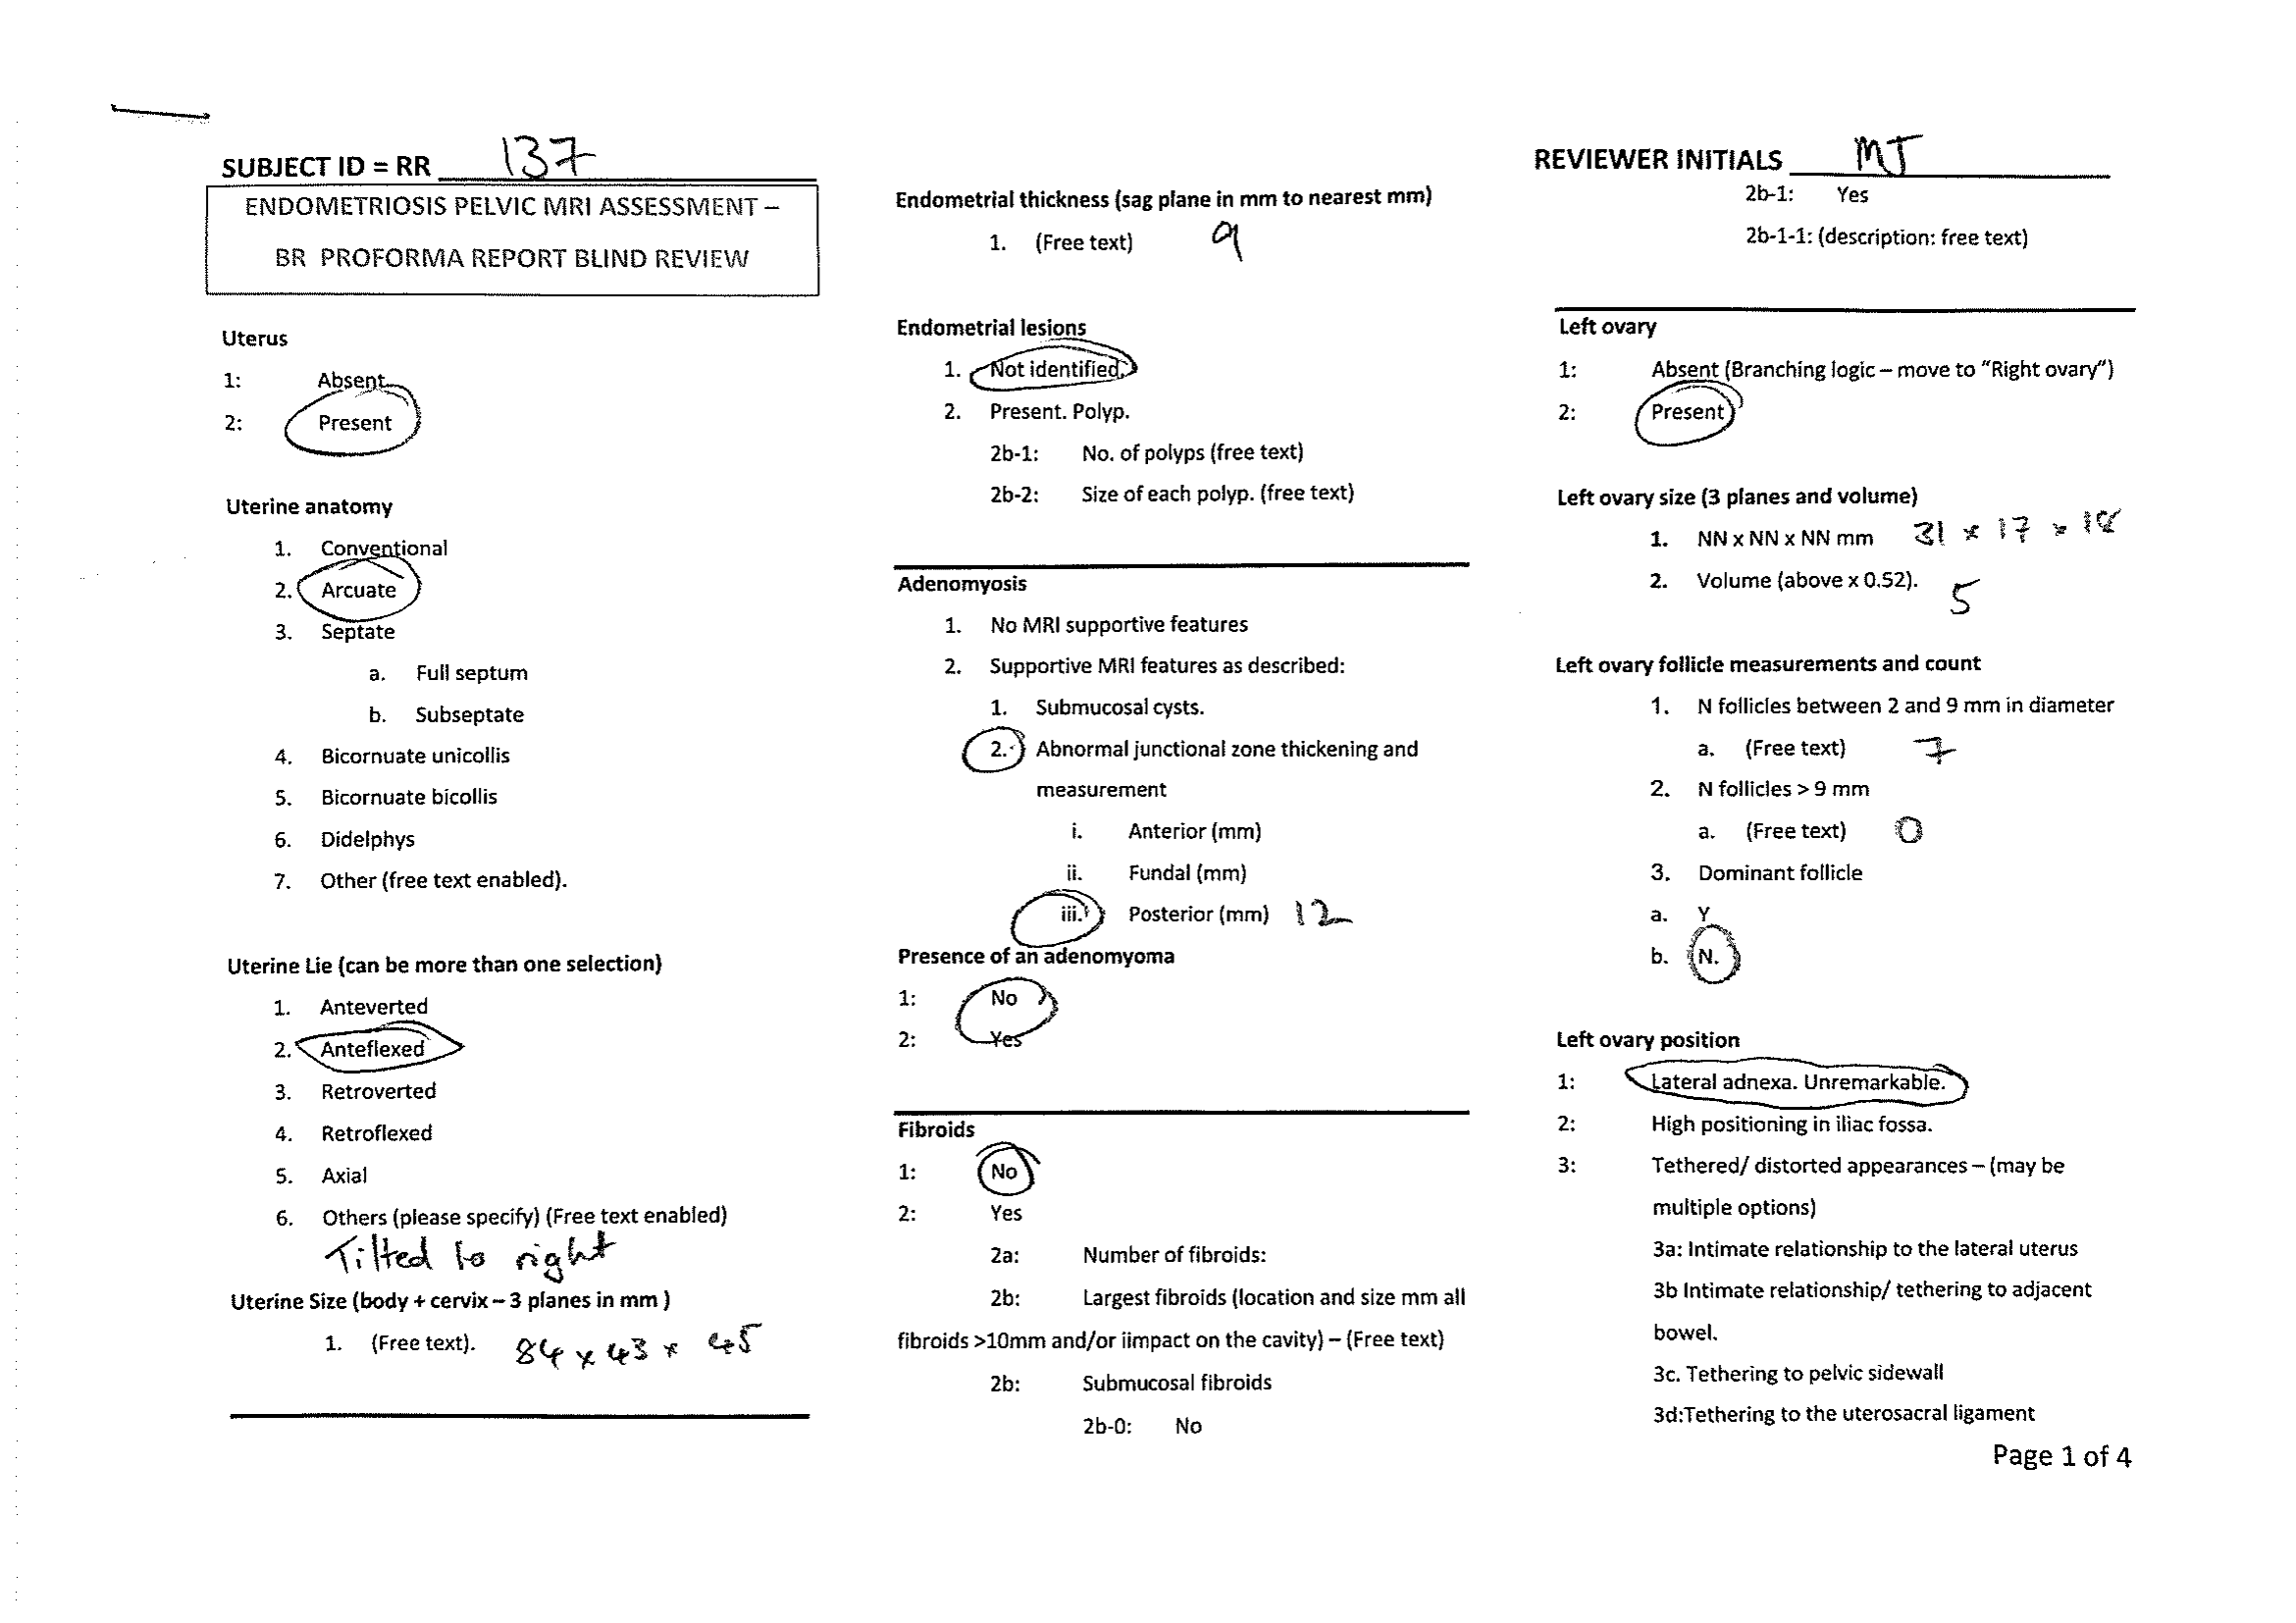 SUBJECT ID = RR 137
ENDOMETRIOSIS PELVIC MRI ASSESSMENT –
BR PROFORMA REPORT BLIND REVIEW
Uterus
1: Absent
2: Present
Uterine anatomy
1. Conventional
2. Arcuate
3. Septate
a. Full septum
b. Subseptate
4. Bicornuate unicollis
5. Bicornuate bicollis
6. Didelphys
7. Other (free text enabled).
Uterine Lie (can be more than one selection)
1. Anteverted
2. Anteflexed
3. Retroverted
4. Retroflexed
5. Axial
6. Others (please specify) (Free text enabled)
Tilted to right
Uterine Size (body + cervix – 3 planes in mm )
1. (Free text). 84 x 43 x 45
Endometrial thickness (sag plane in mm to nearest mm)
1. (Free text) 9
Endometrial lesions
1. Not identified.
2. Present. Polyp.
2b-1: No. of polyps (free text)
2b-2: Size of each polyp. (free text)
Adenomyosis
1. No MRI supportive features
2. Supportive MRI features as described:
1. Submucosal cysts.
2. Abnormal junctional zone thickening and
measurement
i. Anterior (mm)
ii. Fundal (mm)
iii. Posterior (mm) 12
Presence of an adenomyoma
1: No
2: Yes
Fibroids
1: No
2: Yes
2a: Number of fibroids:
2b: Largest fibroids (location and size mm all
fibroids >10mm and/or iimpact on the cavity) – (Free text)
2b: Submucosal fibroids
2b-0: No
REVIEWER INITIALS MJ
2b-1: Yes
2b-1-1: (description: free text)
Left ovary
1: Absent (Branching logic – move to "Right ovary")
2: Present
Left ovary size (3 planes and volume)
1. NN x NN x NN mm 31 x 17 x 18
2. Volume (above x 0.52). 5
Left ovary follicle measurements and count
1. N follicles between 2 and 9 mm in diameter
a. (Free text) 7
2. N follicles > 9 mm
a. (Free text) 0
3. Dominant follicle
a. Y
b. N.
Left ovary position
1: Lateral adnexa. Unremarkable.
2: High positioning in iliac fossa.
3: Tethered/ distorted appearances – (may be
multiple options)
3a: Intimate relationship to the lateral uterus
3b Intimate relationship/ tethering to adjacent
bowel.
3c. Tethering to pelvic sidewall
3d:Tethering to the uterosacral ligament
Page 1 of 4